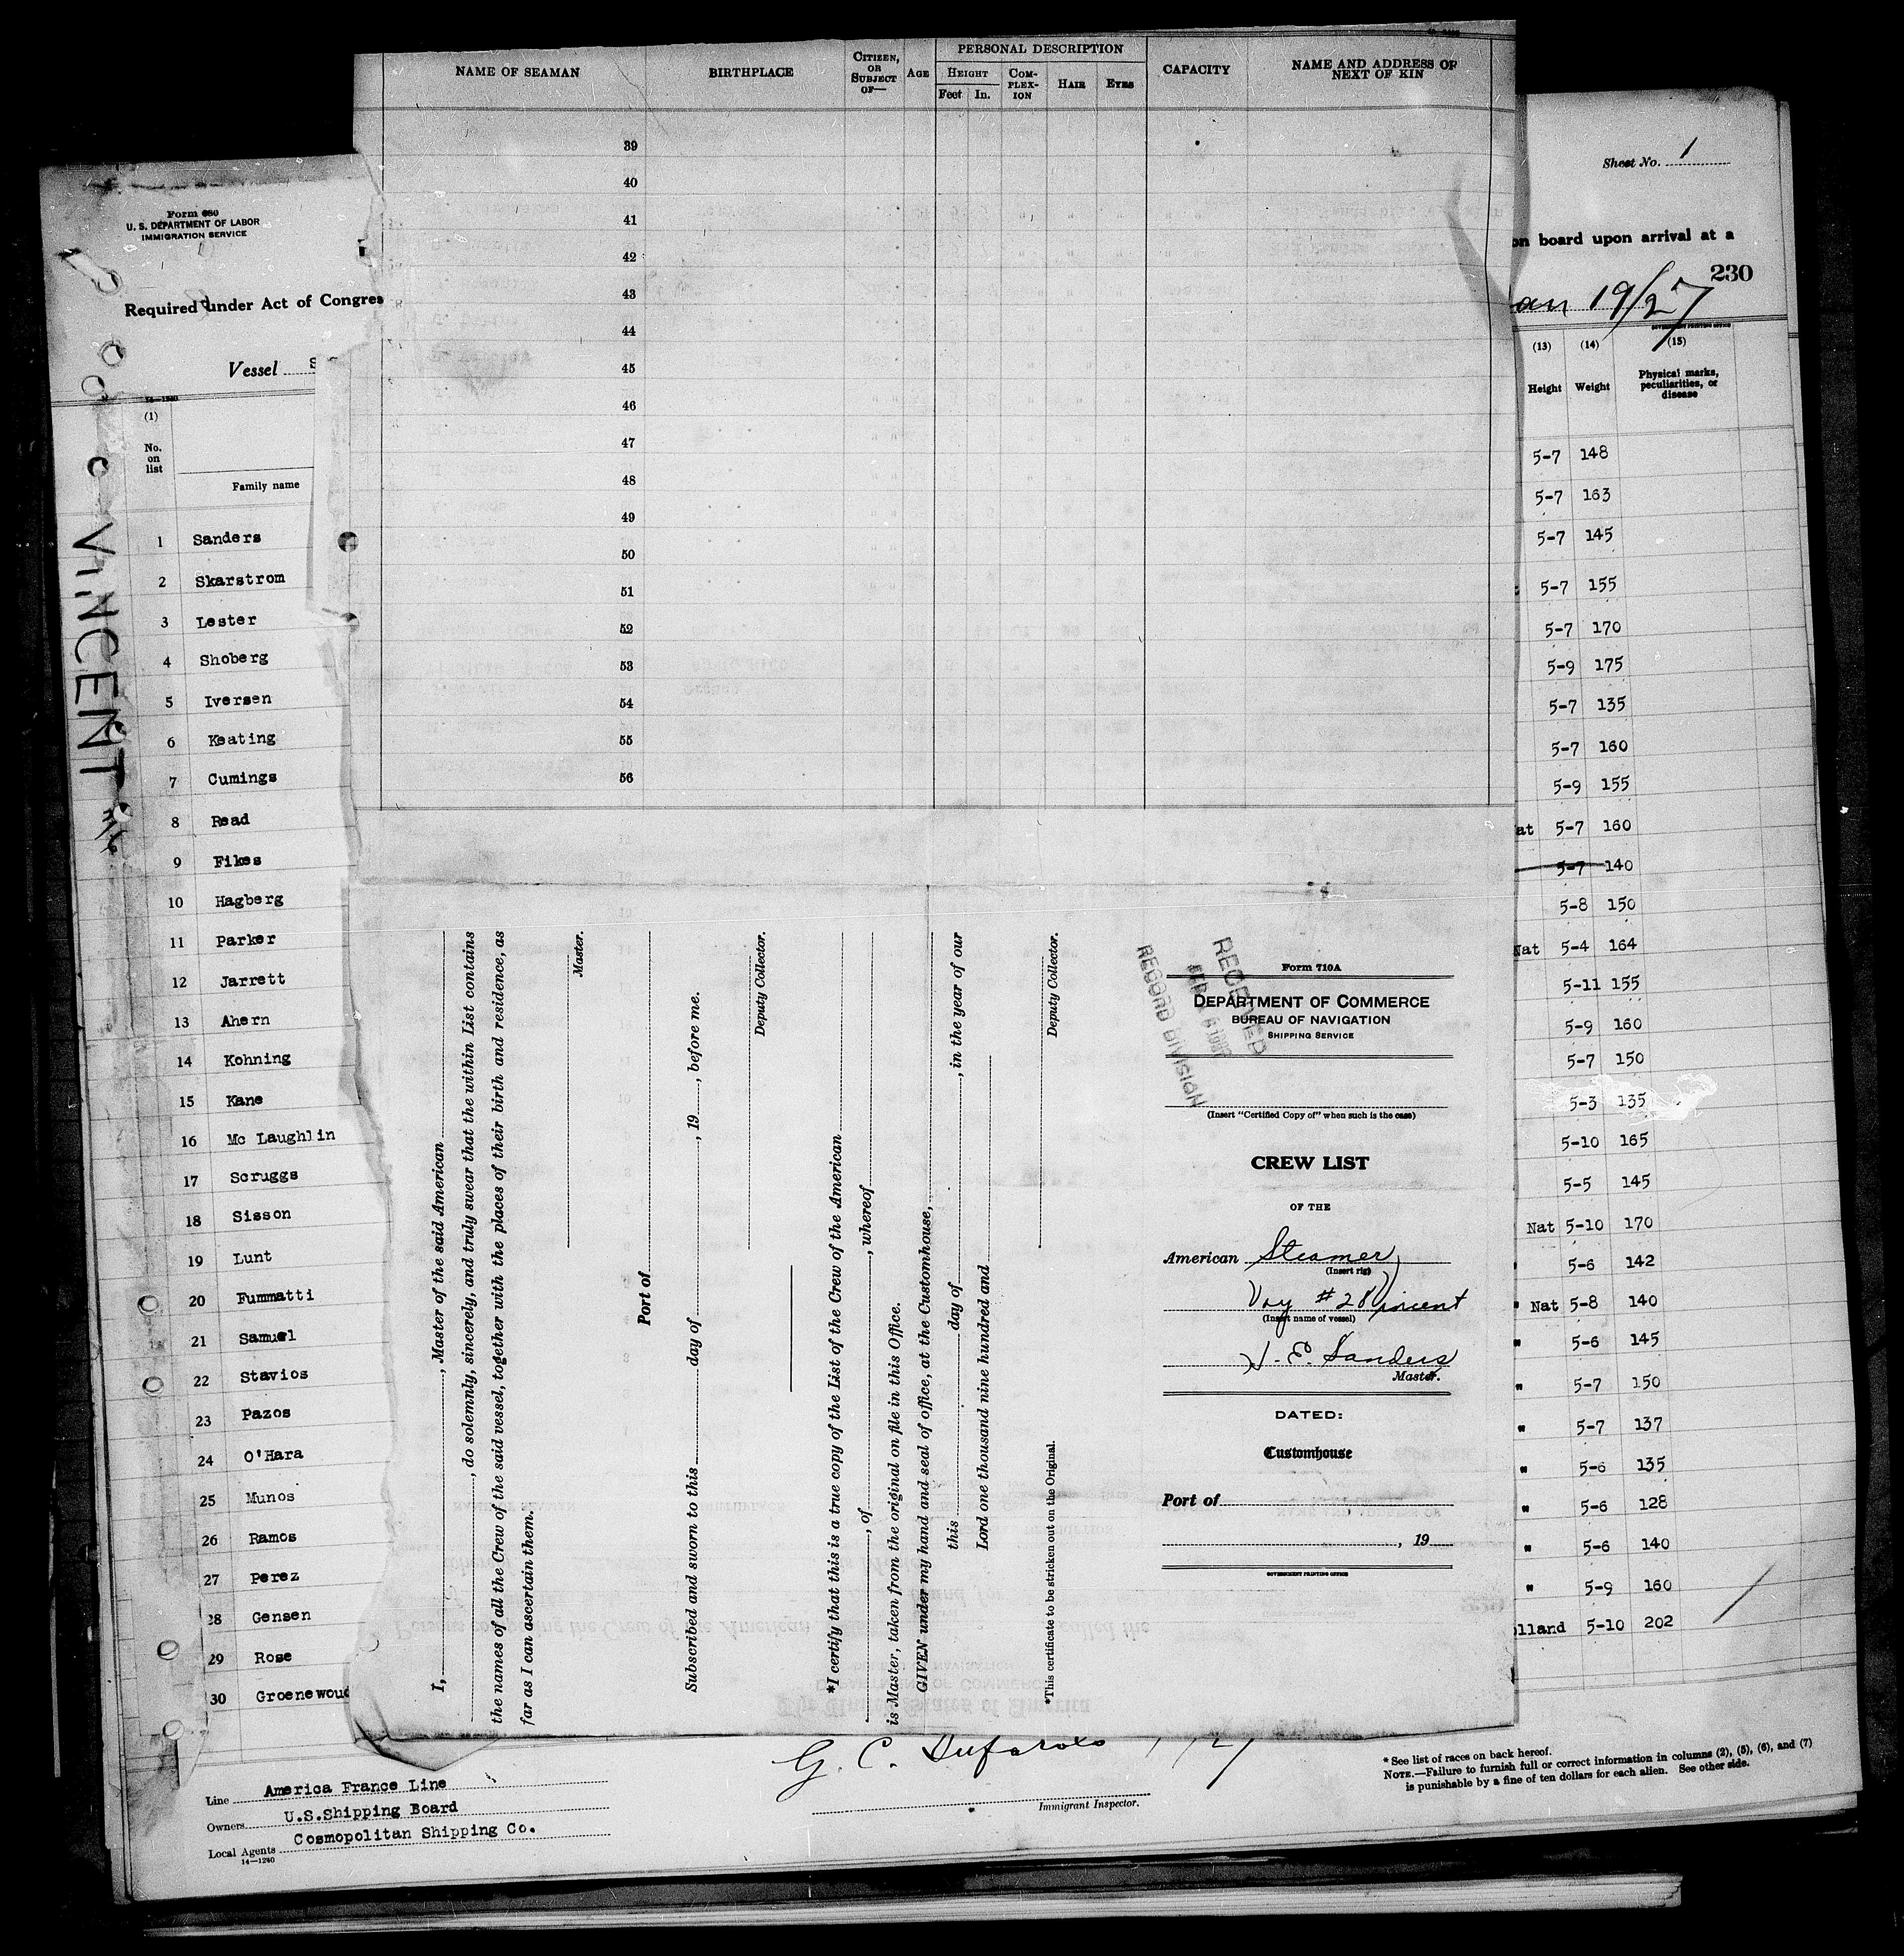 NAME OF SEAMAN
BIRTHPLACE
CITIZEN, OR SUBJECT OF—
AGE
PERSONAL DESCRIPTION
HEIGHT
Feet In.
COM-PLEX-ION
HAIR
EYES
CAPACITY
NAME AND ADDRESS OF NEXT OF KIN
39
40
41
42
43
44
45
46
47
48
49
50
51
52
53
54
55
56
Form 680
U. S. DEPARTMENT OF LABOR
IMMIGRATION SERVICE
Required under Act of Congres
Vessel S
14—1240
(1)
No. on list
Family name
VINCENT
1 Sanders
2 Skarstrom
3 Lester
4 Shoberg
5 Iversen
6 Keating
7 Cumings
8 Read
9 Fikes
10 Hagberg
11 Parker
12 Jarrett
13 Ahern
14 Kohning
15 Kane
16 Mc Laughlin
17 Scruggs
18 Sisson
19 Lunt
20 Fummatti
21 Samuel
22 Stavios
23 Pazos
24 O'Hara
25 Munos
26 Ramos
27 Perez
28 Gensen
29 Rose
30 Groenewoud
Line America France Line
Owners U.S.Shipping Board
Local Agents Cosmopolitan Shipping Co.
14—1240
I, , Master of the said American
, do solemnly, sincerely, and truly swear that the within List contains
the names of all the Crew of the said vessel, together with the places of their birth and residence, as
far as I can ascertain them.
Master.
Port of
Subscribed and sworn to this day of , 19 , before me.
Deputy Collector.
*I certify that this is a true copy of the List of the Crew of the American
, of , whereof
is Master, taken from the original on file in this Office.
GIVEN under my hand and seal of office, at the Customhouse,
this day of , in the year of our
Lord one thousand nine hundred and
Deputy Collector.
*This certificate to be stricken out on the Original.
RECEIVED
RECORD DIVISION
Form 710A
DEPARTMENT OF COMMERCE
BUREAU OF NAVIGATION
SHIPPING SERVICE
(Insert "Certified Copy of" when such is the case)
CREW LIST
OF THE
American Steamer
(Insert rig)
Voy #28 Vincent
(Insert name of vessel)
J. E. Sanders
Master.
DATED:
Customhouse
Port of
, 19
GOVERNMENT PRINTING OFFICE
G. C.
Immigrant Inspector.
Sheet No. 1
on board upon arrival at a
230
an 19/27
GOVERNMENT PRINTING OFFICE
(13) (14) (15)
Height Weight Physical marks, peculiarities, or disease
5-7 148
5-7 163
5-7 145
5-7 155
5-7 170
5-9 175
5-7 135
5-7 160
5-9 155
at 5-7 160
5-7 140
5-8 150
Nat 5-4 164
5-11 155
5-9 160
5-7 150
5-3 135
5-10 165
5-5 145
Nat 5-10 170
5-6 142
" Nat 5-8 140
" 5-6 145
" 5-7 150
" 5-7 137
" 5-6 135
" 5-6 128
" 5-6 140
" 5-9 160
lland 5-10 202
* See list of races on back hereof.
NOTE.—Failure to furnish full or correct information in columns (2), (5), (6), and (7)
is punishable by a fine of ten dollars for each alien. See other side.